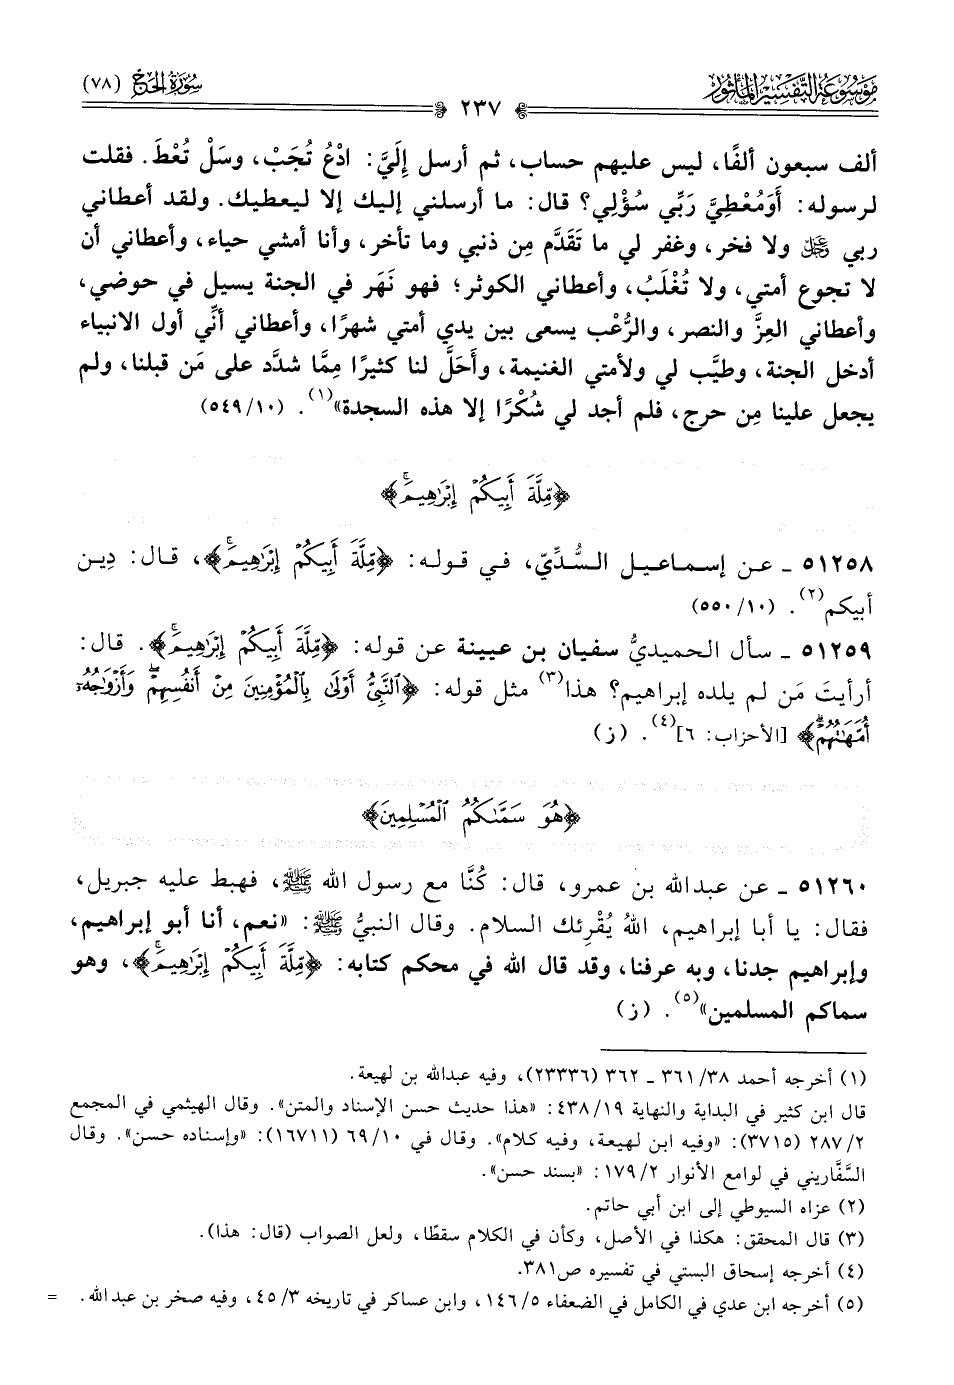 موسوعة التفسير المأثور
٢٣٧
سورة الحج (٧٨)
ألف سبعون ألفًا، ليس عليهم حساب، ثم أرسل إِلَيَّ: ادْعُ تُجَبْ، وسَلْ تُعْطَ. فقلت
لرسوله: أَوَمُعْطِيَّ رَبِّي سُؤْلِي؟ قال: ما أرسلني إليك إلا ليعطيك. ولقد أعطاني
ربي ﷿ ولا فخر، وغفر لي ما تَقَدَّم مِن ذنبي وما تأخر، وأنا أمشي حياء، وأعطاني أن
لا تجوع أمتي، ولا تُغْلَبُ، وأعطاني الكوثر؛ فهو نَهَر في الجنة يسيل في حوضي،
وأعطاني العِزَّ والنصر، والرُّعْب يسعى بين يدي أمتي شهرًا، وأعطاني أنِّي أول الانبياء
أدخل الجنة، وطيَّب لي ولأمتي الغنيمة، وأحَلَّ لنا كثيرًا مِمَّا شدَّد على مَن قبلنا، ولم
يجعل علينا مِن حرج، فلم أجد لي شُكْرًا إلا هذه السجدة»(١). (٥٤٩/١٠)
﴿مِّلَّةَ أَبِيكُمْ إِبْرَٰهِيمَۚ﴾
٥١٢٥٨ ـ عـن إسـماعـيل الـسُّدِّيّ، فـي قـولـه: ﴿مِّلَّةَ أَبِيكُمْ إِبْرَٰهِيمَۚ﴾، قـال: دِيـن
أبيكم(٢). (٥٥٠/١٠)
٥١٢٥٩ ـ سأل الحميديُّ سفيان بن عيينة عن قوله: ﴿مِّلَّةَ أَبِيكُمْ إِبْرَٰهِيمَۚ﴾. قال:
أرأيتَ مَن لم يلده إبراهيم؟ هذا(٣) مثل قوله: ﴿ٱلنَّبِىُّ أَوْلَىٰ بِٱلْمُؤْمِنِينَ مِنْ أَنفُسِهِمْۖ وَأَزْوَٰجُهُۥٓ
أُمَّهَٰتُهُمْۗ﴾ [الأحزاب: ٦](٤). (ز)
﴿هُوَ سَمَّىٰكُمُ ٱلْمُسْلِمِينَ﴾
٥١٢٦٠ ـ عن عبدالله بن عمرو، قال: كُنَّا مع رسول الله ﷺ، فهبط عليه جبريل،
فقال: يا أبا إبراهيم، اللهُ يُقْرِئك السلام. وقال النبيُّ ﷺ: «نعم، أنا أبو إبراهيم،
وإبراهيم جدنا، وبه عرفنا، وقد قال الله في محكم كتابه: ﴿مِّلَّةَ أَبِيكُمْ إِبْرَٰهِيمَۚ﴾، وهو
سماكم المسلمين»(٥). (ز)
(١) أخرجه أحمد ٣٨/ ٣٦١ ـ ٣٦٢ (٢٣٣٣٦)، وفيه عبدالله بن لهيعة.
قال ابن كثير في البداية والنهاية ١٩/ ٤٣٨: «هذا حديث حسن الإسناد والمتن». وقال الهيثمي في المجمع
٢/ ٢٨٧ (٣٧١٥): «وفيه ابن لهيعة، وفيه كلام». وقال في ١٠/ ٦٩ (١٦٧١١): «وإسناده حسن». وقال
السَّفَّاريني في لوامع الأنوار ٢/ ١٧٩: «بسند حسن».
(٢) عزاه السيوطي إلى ابن أبي حاتم.
(٣) قال المحقق: هكذا في الأصل، وكأن في الكلام سقطًا، ولعل الصواب (قال: هذا).
(٤) أخرجه إسحاق البستي في تفسيره ص٣٨١.
(٥) أخرجه ابن عدي في الكامل في الضعفاء ٥/ ١٤٦، وابن عساكر في تاريخه ٣/ ٤٥، وفيه صخر بن عبدالله. =